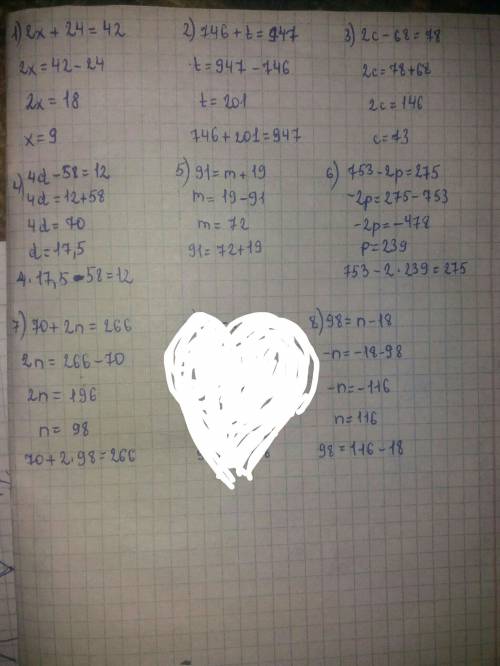 1) 2x + 24 = 42
2x = 42 - 24
2x = 18
x = 9
2) 746 + t = 947
t = 947 - 746
t = 201
746 + 201 = 947
3) 2c - 68 = 78
2c = 78 + 68
2c = 146
c = 73
4) 4d - 58 = 12
4d = 12 + 58
4d = 70
d = 17,5
4 · 17,5 - 58 = 12
5) 91 = m + 19
m = 19 - 91
m = 72
91 = 72 + 19
6) 753 - 2p = 275
-2p = 275 - 753
-2p = -478
p = 239
753 - 2 · 239 = 275
7) 70 + 2n = 266
2n = 266 - 70
2n = 196
n = 98
70 + 2 · 98 = 266
8) 98 = n - 18
-n = -18 - 98
-n = -116
n = 116
98 = 116 - 18